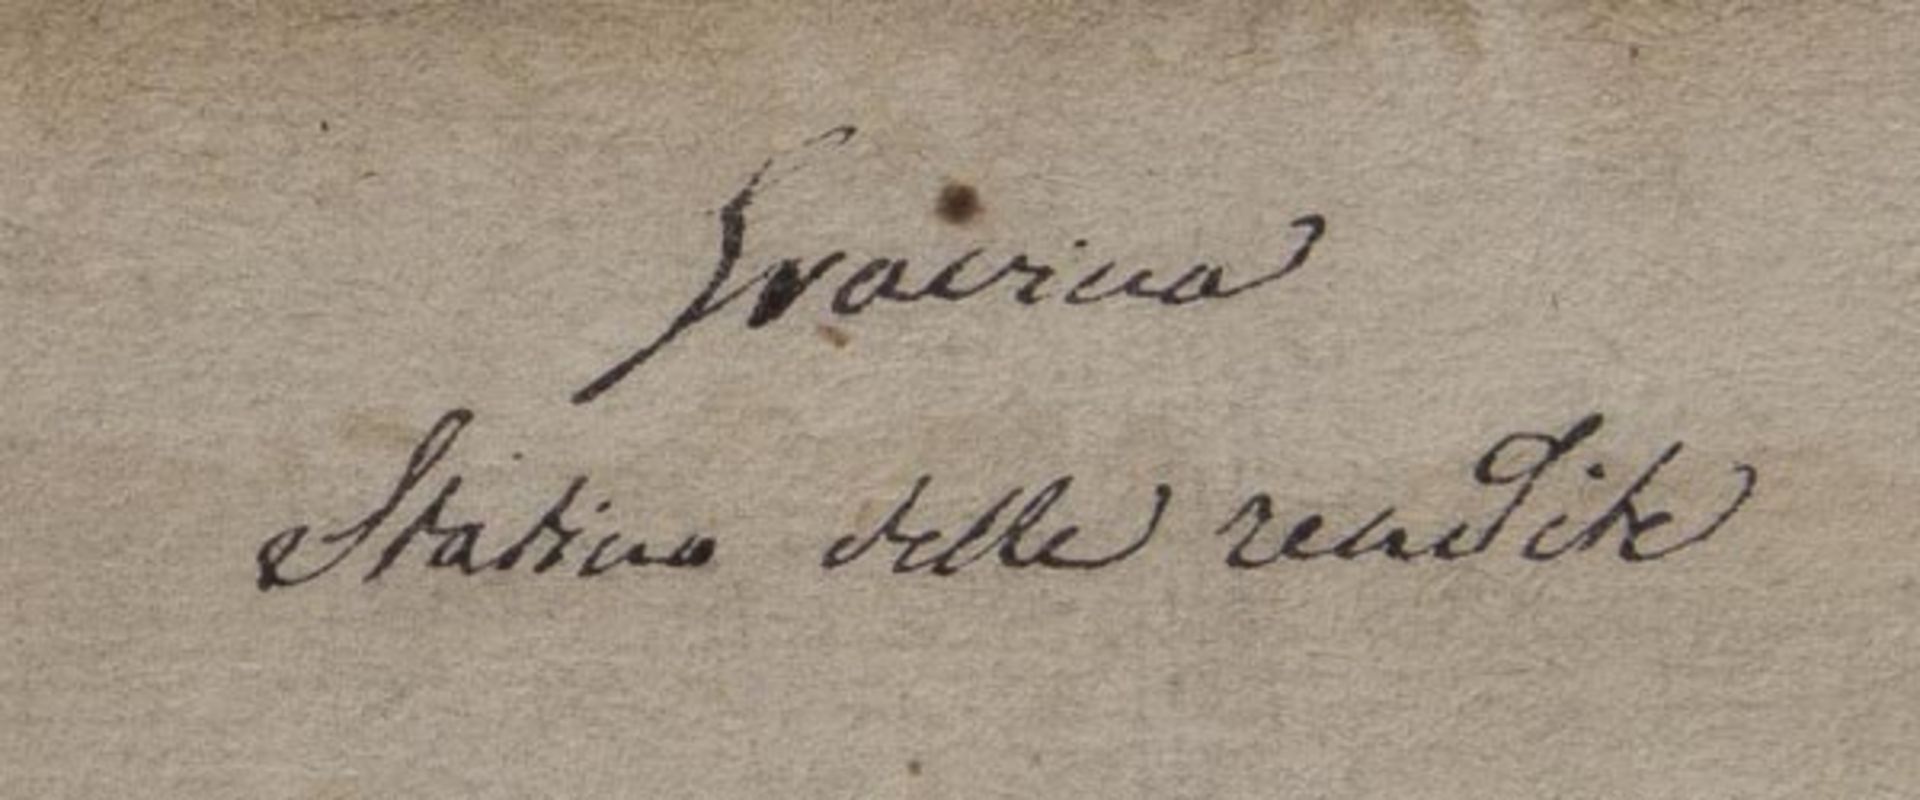 Gravina
Statino delle rendite